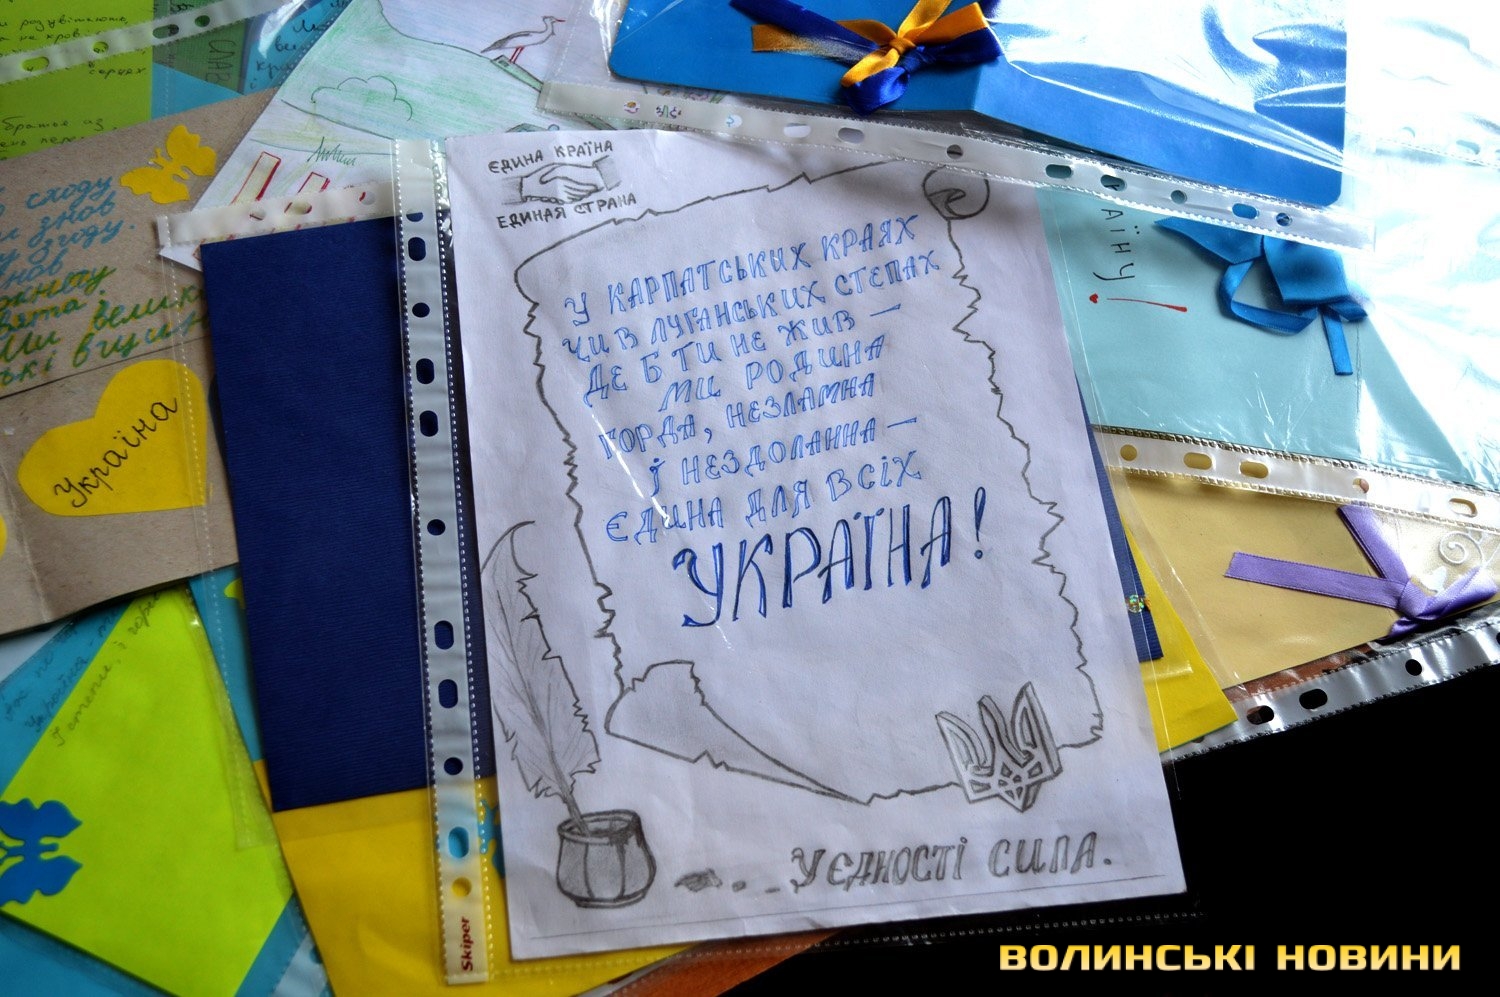 ЄДИНА КРАЇНА
ЕДИНАЯ СТРАНА
У КАРПАТСЬКИХ КРАЯХ
ЧИ В ЛУГАНСЬКИХ СТЕПАХ
ДЕ Б ТИ НЕ ЖИВ —
МИ РОДИНА
ГОРДА, НЕЗЛАМНА
І НЕЗДОЛАННА —
ЄДИНА ДЛЯ ВСІХ
УКРАЇНА!
... У ЄДНОСТІ СИЛА.
сходу
знов
згоду.
Ми великі
Україна
АЇНУ!
Skiper
ВОЛИНСЬКІ НОВИНИ